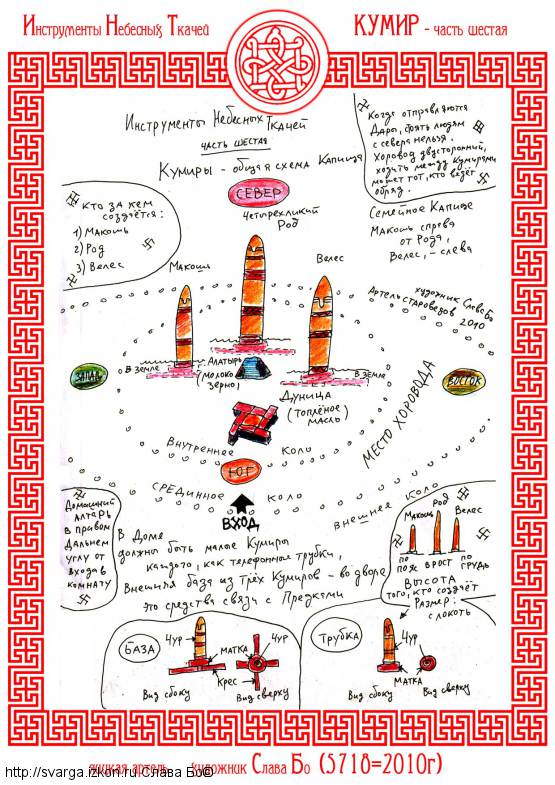 Инструменты Небесных Ткачей
КУМИР - часть шестая
Инструменты Небесных Ткачей
часть шестая
Кумиры - общая схема Капища
Когда отправляются
Дары, брать людям
с севера нельзя.
Хоровод двусторонний,
ходить между Кумирами
может тот, кто ведёт
обряд.
Кто за кем
создаётся:
1) Макошь
2) Род
3) Велес
СЕВЕР
Четырёхликий
Род
Семейное Капище
Макошь справа
от Рода,
Велес, - слева
Макошь
Велес
художник Слава Бо
Артель староведов
2010
ЗАПАД
В земле
Алатырь
(молоко
зерно)
В земле
ВОСТОК
Дуница
(топлёное
масло)
МЕСТО ХОРОВОДА
Внутреннее коло
ЮГ
Срединное коло
Внешнее коло
ВХОД
Домашний
Алтарь
в правом
дальнем
углу от
входа в
комнату
В Доме
должны быть малые Кумиры
каждого, как телефонные трубки,
Внешняя база из трёх Кумиров - во дворе
Это средства связи с Предками
Макошь
Род
Велес
по пояс
в рост
по грудь
Высота
того, кто создаёт
Размер:
с локоть
БАЗА
Чур
матка
Чур
Крес
Вид сбоку
Вид сверху
Трубка
Чур
матка
Вид сбоку
Вид сверху
художник Слава Бо (5718=2010г)
http://svarga.izkon.ru/Слава Бо©